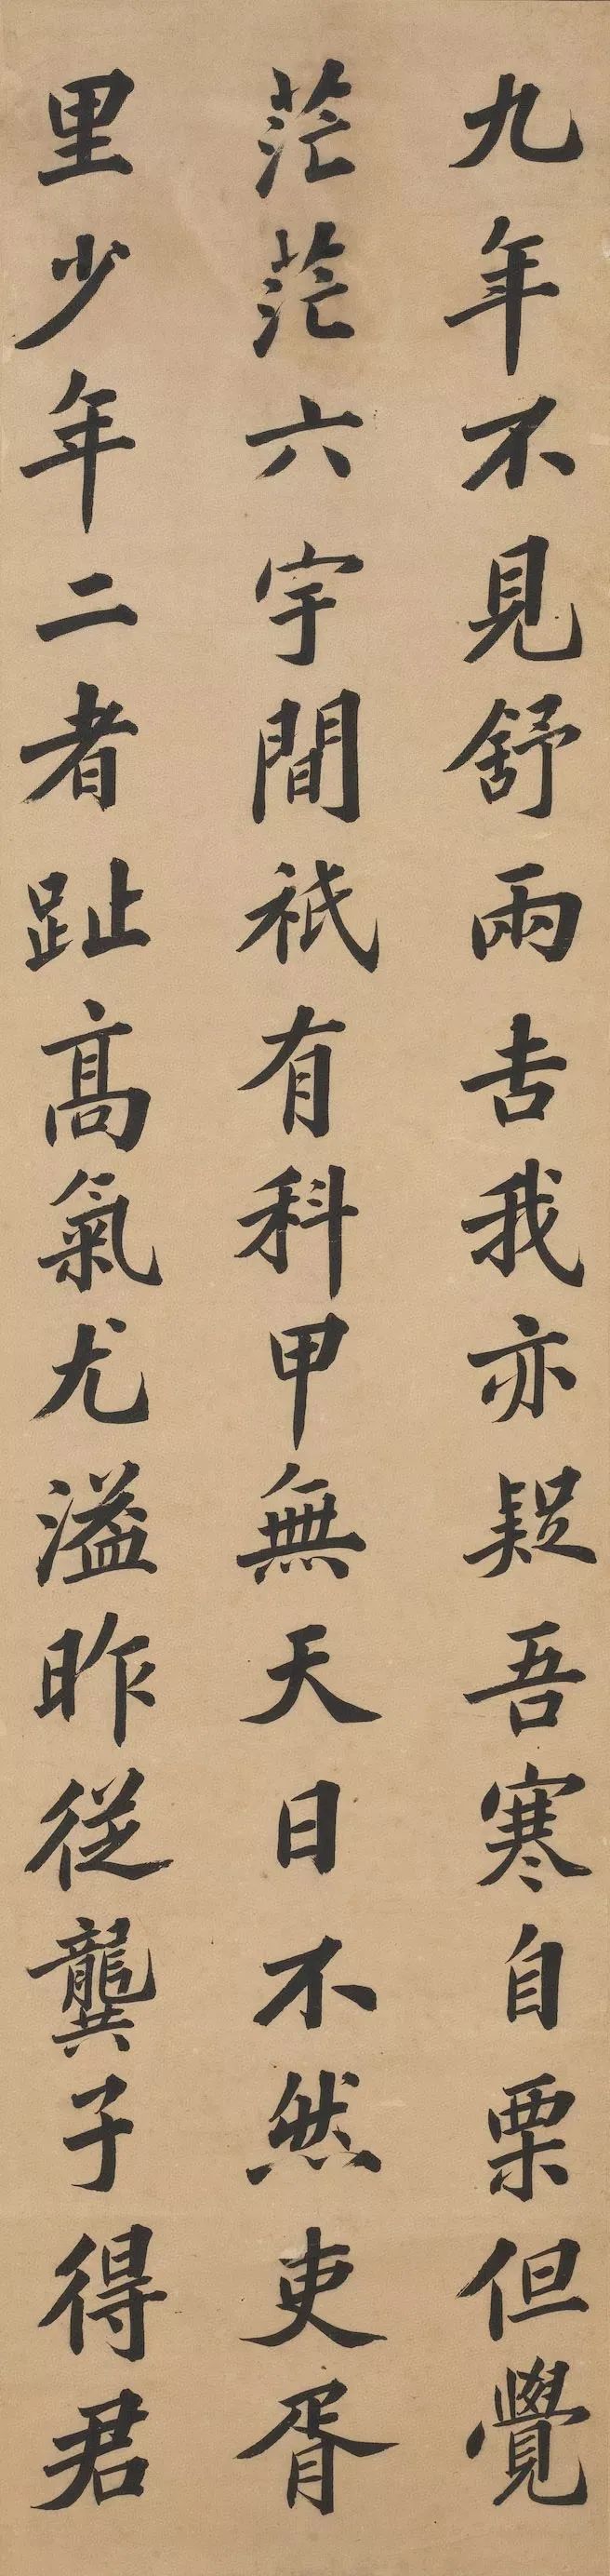 九年不見舒兩吉我亦疑吾寒自栗但覺
茫茫六宇間祇有科甲無天日不然吏胥
里少年二者趾高氣尤溢昨從龔子得君